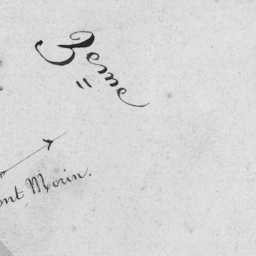 3eme
ont Morin.